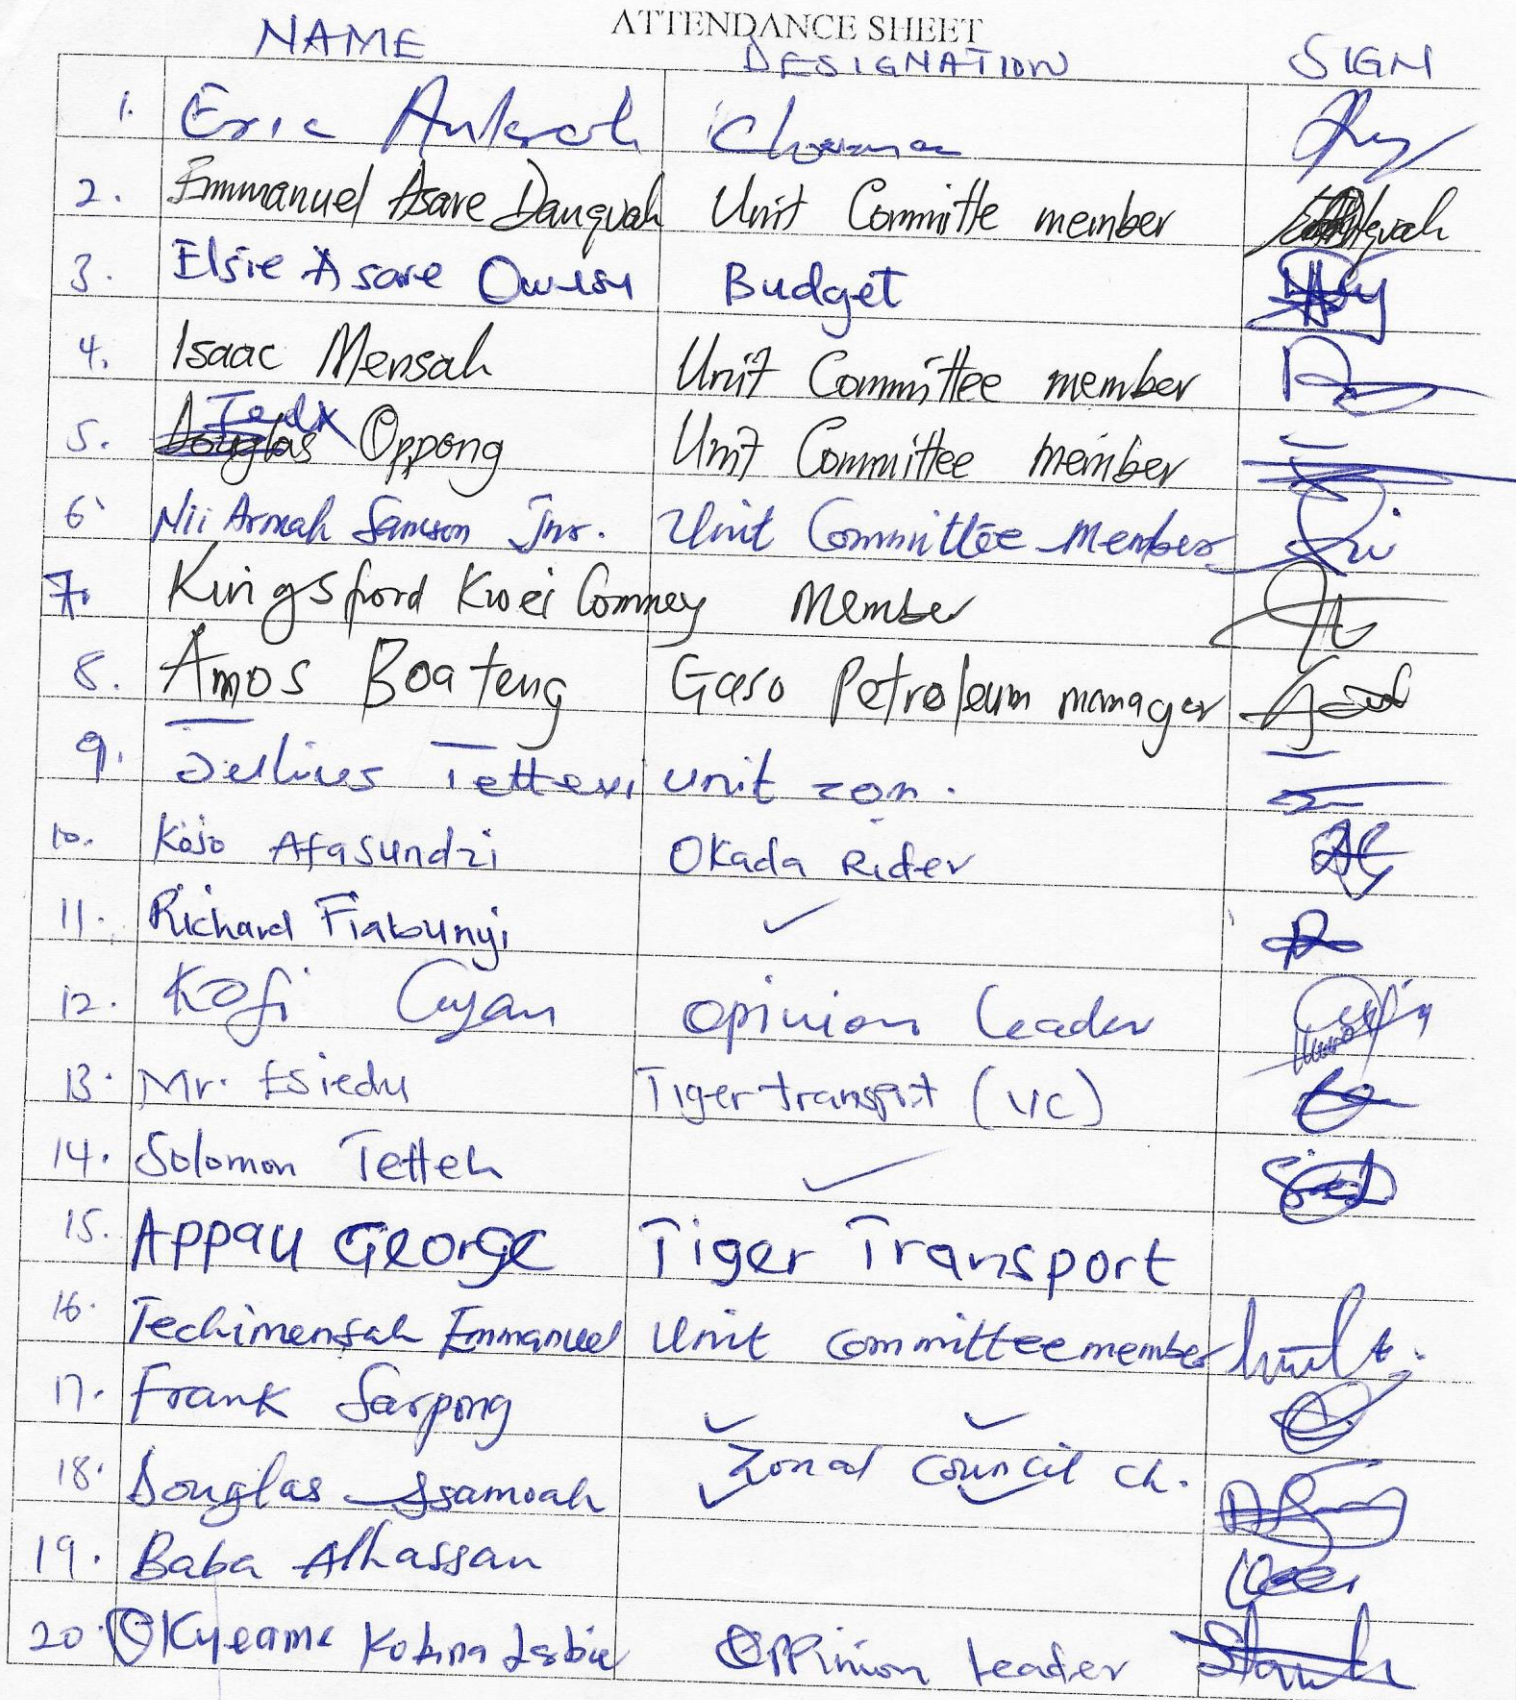 ATTENDANCE SHEET
NAME DESIGNATION SIGN
1. Eric Ankrah
2. Emmanuel Asare Danquah Unit Committe member
3. Elsie Asare Owusu Budget
4. Isaac Mensah Unit Committee member
5. Douglas Oppong Unit Committee member
6 Nii Armah Samson Jnr. Unit Committee Member
7. Kingsford Kwei Commey Member
8. Amos Boateng Gaso Petroleum manager
9. Julius Unit zon.
10. Kojo Afasundzi Okada Rider
11. Richard Fiabunyi ✓
12. Kofi Opinion Leader
13. Mr. Esiedu Tiger transport (VC)
14. Solomon Tetteh ✓
15. Appau George Tiger Transport
16. Techimensah Emmanuel Unit committee member
17. Frank Sarpong ✓ ✓
18. Douglas Asamoah Zonal Council Ch.
19. Baba Alhassan ✓ ✓
20. Okyeame Kobina Oppinion Leader